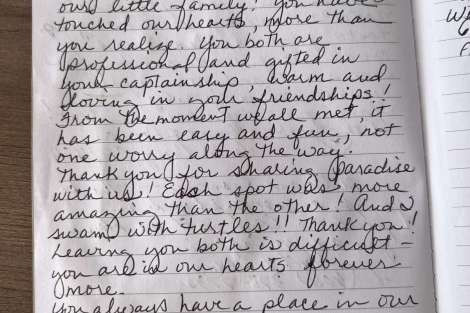 our little family! You have
touched our hearts, more than
you realize. You both are
professional and gifted in
your captainship, warm and
loving in your friendships!
From the moment we all met, it
has been easy and fun, not
one worry along the way.
Thank you for sharing paradise
with us! Each spot was more
amazing than the other! And I
swam with turtles!! Thank you!
Leaving you both is difficult -
you are in our hearts forever
more.
You always have a place in our